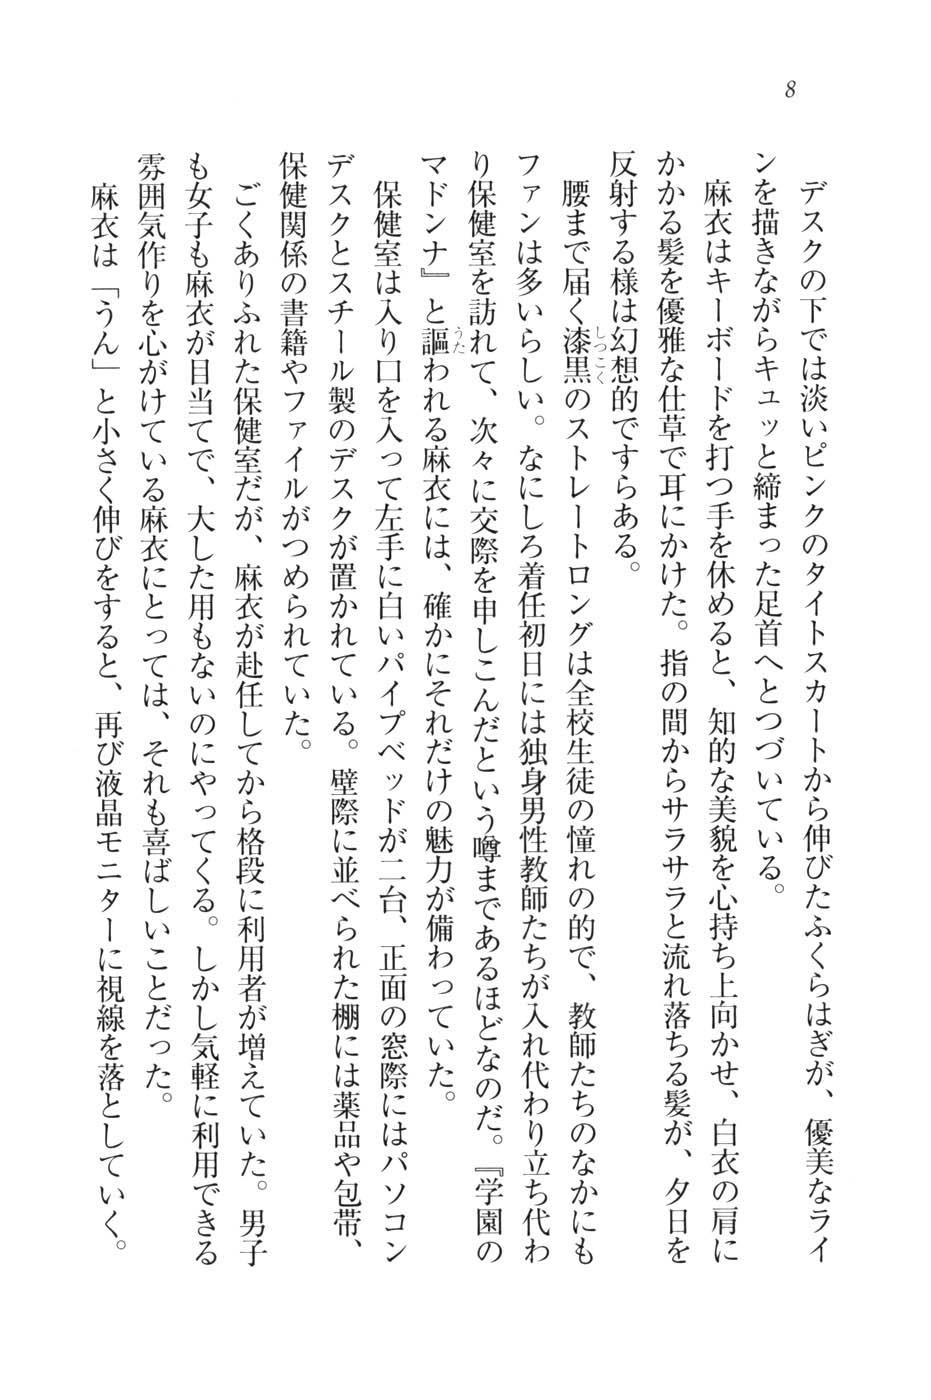 8
デスクの下では淡いピンクのタイトスカートから伸びたふくらはぎが、優美なライ
ンを描きながらキュッと締まった足首へとつづいている。
麻衣はキーボードを打つ手を休めると、知的な美貌を心持ち上向かせ、白衣の肩に
かかる髪を優雅な仕草で耳にかけた。指の間からサラサラと流れ落ちる髪が、夕日を
反射する様は幻想的ですらある。
腰まで届く漆黒のストレートロングは全校生徒の憧れの的で、教師たちのなかにも
しつこく
ファンは多いらしい。なにしろ着任初日には独身男性教師たちが入れ代わり立ち代わ
り保健室を訪れて、次々に交際を申しこんだという噂まであるほどなのだ。『学園の
マドンナ』と謳われる麻衣には、確かにそれだけの魅力が備わっていた。
うた
保健室は入り口を入って左手に白いパイプベッドが二台、正面の窓際にはパソコン
デスクとスチール製のデスクが置かれている。壁際に並べられた棚には薬品や包帯、
保健関係の書籍やファイルがつめられていた。
ごくありふれた保健室だが、麻衣が赴任してから格段に利用者が増えていた。男子
も女子も麻衣が目当てで、大した用もないのにやってくる。しかし気軽に利用できる
雰囲気作りを心がけている麻衣にとっては、それも喜ばしいことだった。
麻衣は「うん」と小さく伸びをすると、再び液晶モニターに視線を落としていく。